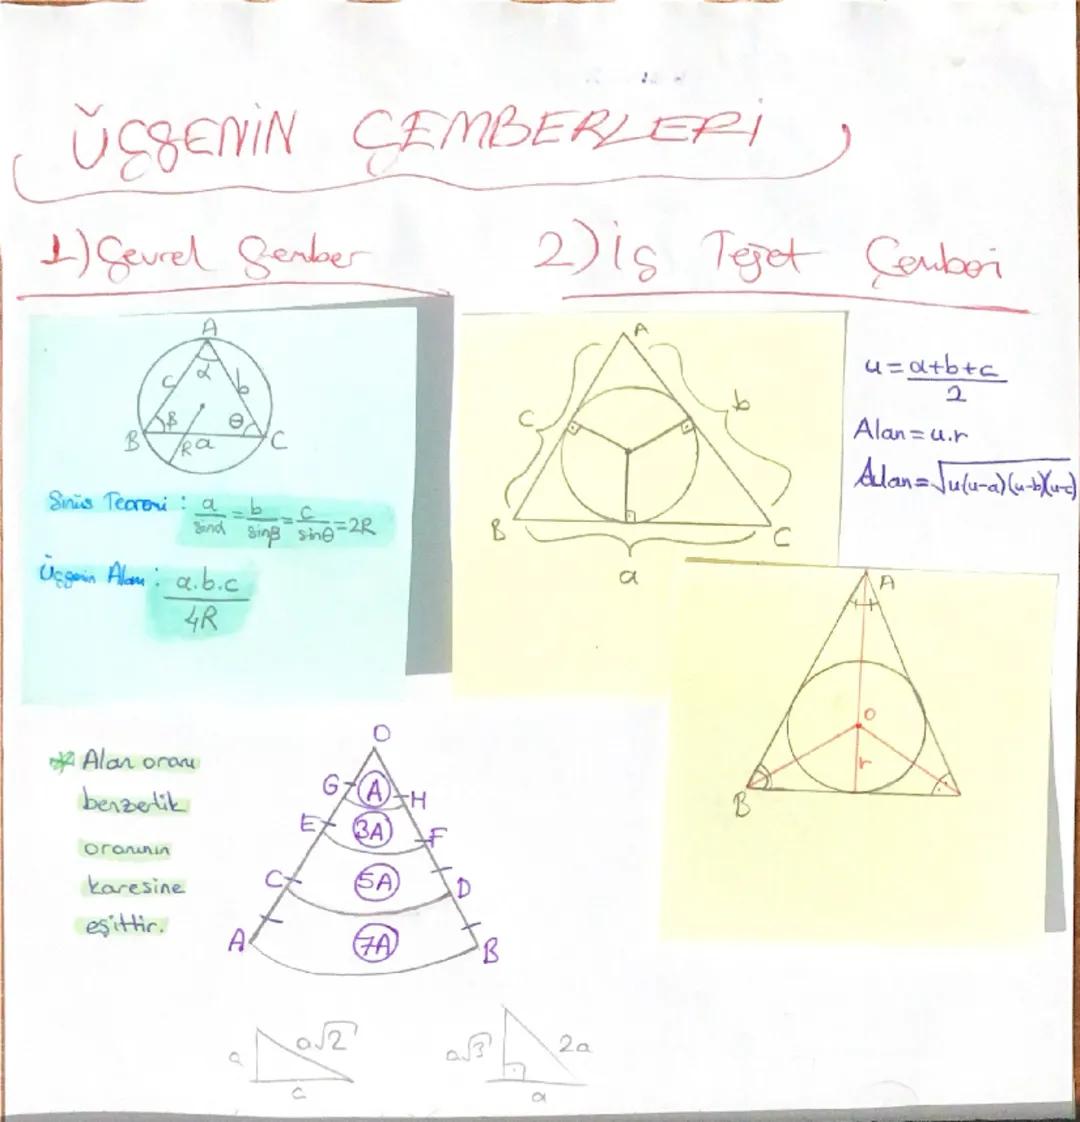 ÜÇGENİN ÇEMBERLERİ
1) Çevrel Çember
A
α
c
b
β
θ
B
R
a
C
Sinüs Teoremi : a/sinα = b/sinβ = c/sinθ = 2R
Üçgenin Alanı : a.b.c/4R
2) İç Teğet Çemberi
A
c
b
B
C
a
u = a+b+c/2
Alan = u.r
Alan = √u(u-a)(u-b)(u-c)
A
O
r
B
* Alan oranı
benzerlik
oranının
karesine
eşittir.
O
G A H
E 3A F
C 5A D
A 7A B
a a√2
a√3 2a
a